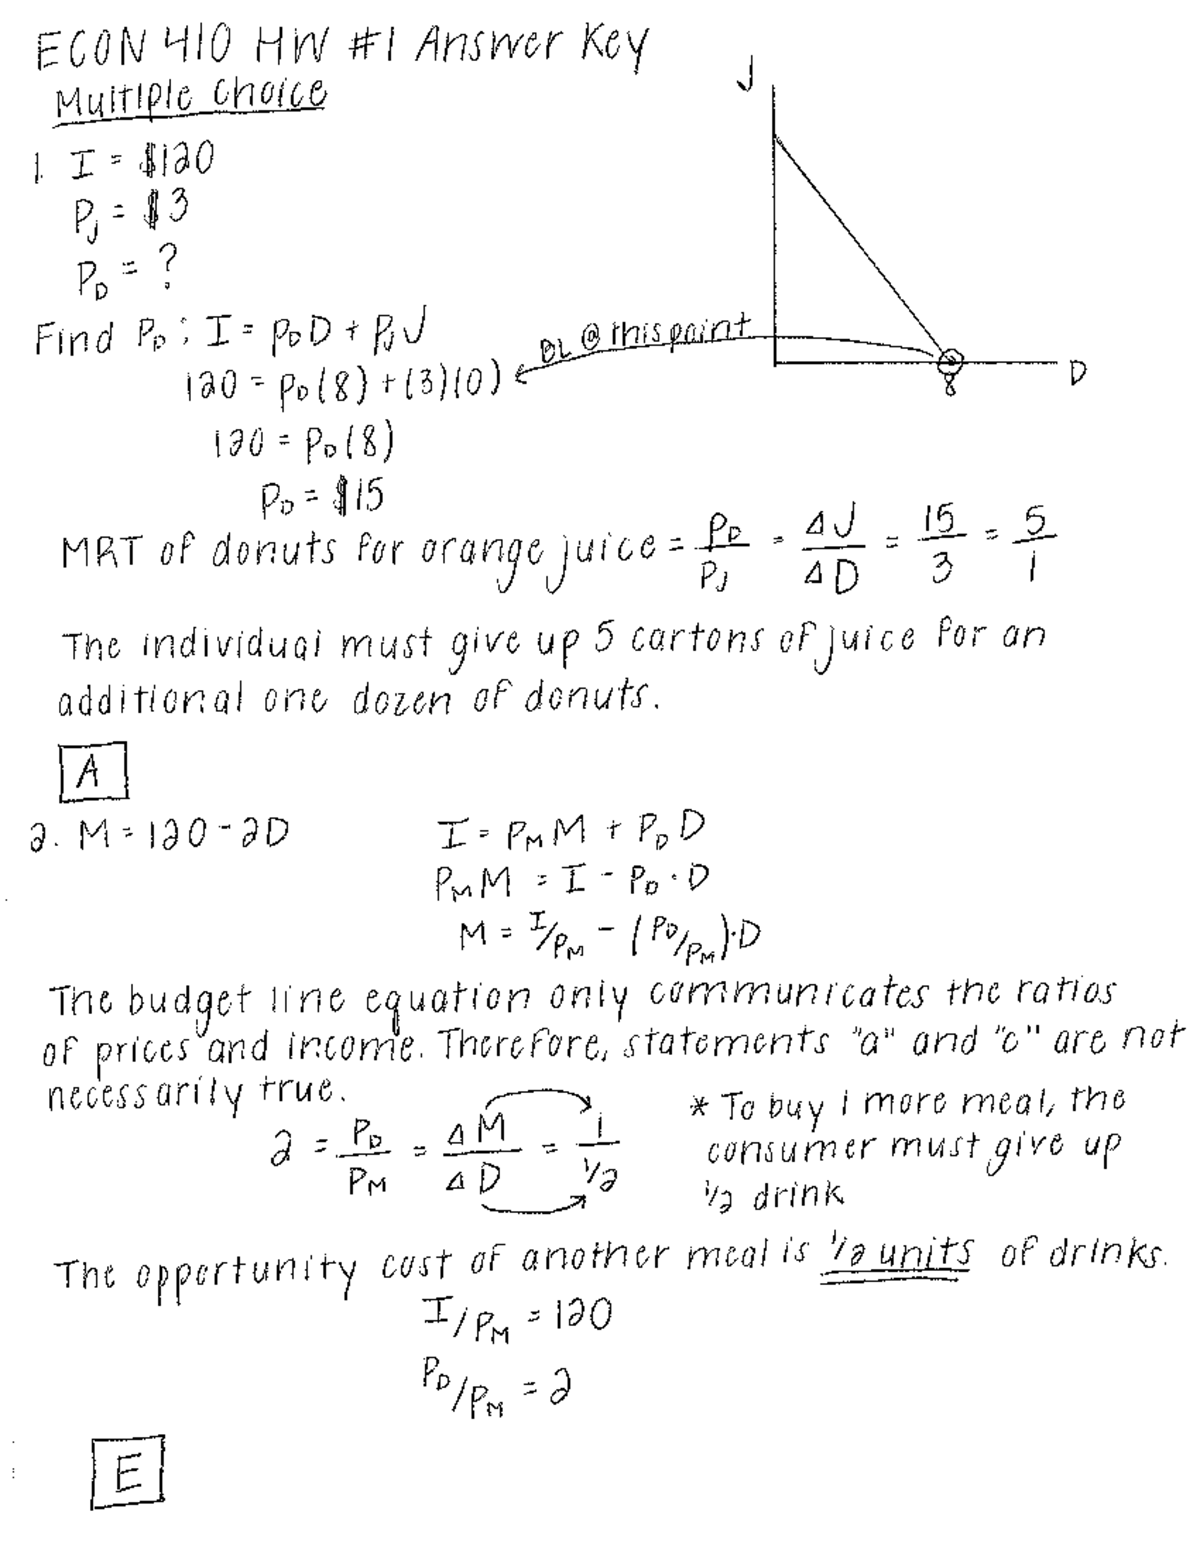 ECON 410 HW #1 Answer Key
Multiple Choice
J
1. I = $120
P_J = $3
P_D = ?
Find P_D: I = P_D D + P_J J
BL @ this point
120 = P_D(8) + (3)(0)
8
D
120 = P_D(8)
P_D = $15
MRT of donuts for orange juice = P_D/P_J = ΔJ/ΔD = 15/3 = 5/1
The individual must give up 5 cartons of juice for an
additional one dozen of donuts.
A
2. M = 120 - 2D
I = P_M M + P_D D
P_M M = I - P_D · D
M = I/P_M - (P_D/P_M)·D
The budget line equation only communicates the ratios
of prices and income. Therefore, statements "a" and "c" are not
necessarily true.
2 = P_D/P_M = ΔM/ΔD = 1/½
* To buy 1 more meal, the
consumer must give up
1/2 drink
The opportunity cost of another meal is 1/2 units of drinks.
I/P_M = 120
P_D/P_M = 2
E